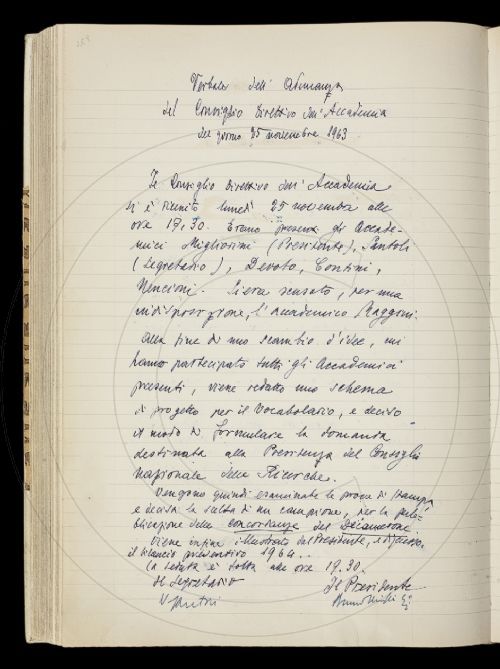 Verbale dell' Adunanza
del Consiglio Direttivo dell'Accademia
del giorno 25 novembre 1963
Il Consiglio Direttivo dell'Accademia
si è riunito lunedì 25 novembre alle
ore 17,30. Erano presenti gli Accade-
mici Migliorini (Presidente), Santoli
(Segretario), Devoto, Contini,
Nencioni. Si era scusato, per una
indisposizione, l'Accademico Maggini.
Alla fine di uno scambio d'idee, cui
hanno partecipato tutti gli Accademici
presenti, viene redatto uno schema
di progetto per il Vocabolario, e deciso
il modo di formulare la domanda
destinata alla Presidenza del Consiglio
nazionale delle Ricerche.
Vengono quindi esaminate le prove di stampa,
e decisa la scelta di un campione, per la pub-
blicazione delle concordanze del Decameron.
Viene infine illustrato dal Presidente, e discusso,
il bilancio preventivo 1964.
La seduta è tolta alle ore 19.30.
Il Segretario Il Presidente
V. Santoli Bruno Migliorini